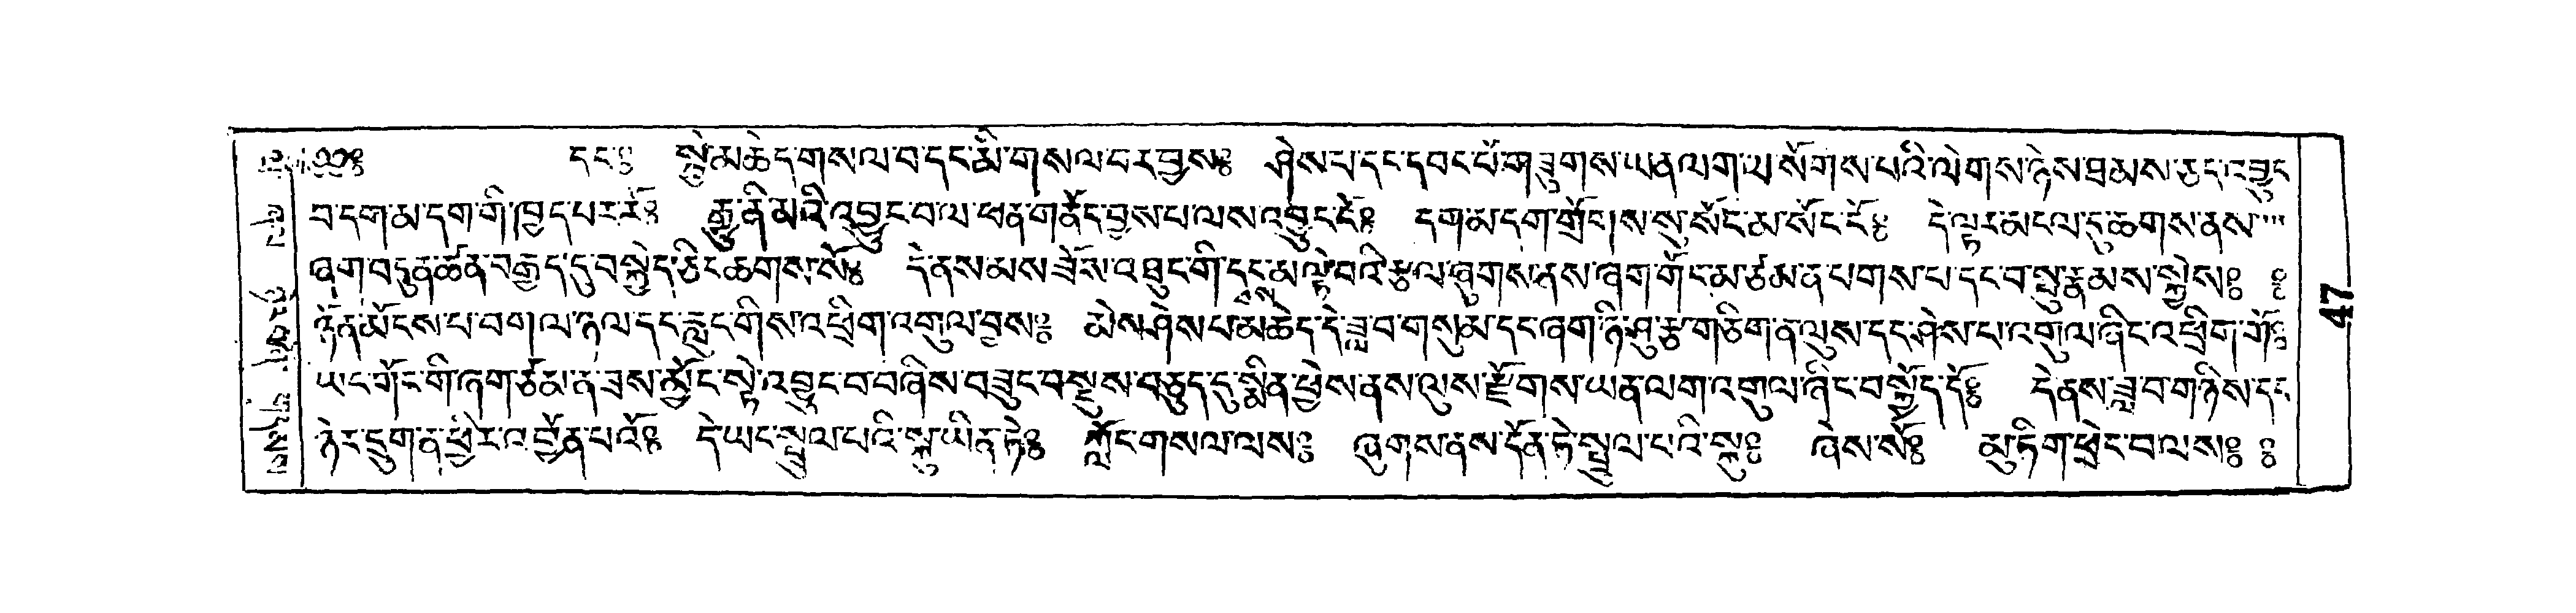 ༄༅༔ དང་༔ སྐྱེ་མཆེད་གསལ་བ་དང་མི་གསལ་བར་བྱས༔ ཤེས་པ་དང་དབང་པོ་གཟུགས་ཡན་ལག་ལ་སོགས་པའི་ལེགས་ཉེས་ཐམས་ཅད་འབྱུང
བ་དག་མ་དག་གི་ཁྱད་པར་རོ༔ རྒྱུ་ནི་མའི་འབྱུང་བ་ལ་ཕན་གནོད་བྱས་པ་ལས་འབྱུང་ངོ༔ དག་མ་དག་གྲོངས་སུ་སོང་མ་སོང་ངོ༔ དེ་ལྟར་མངལ་དུ་ཆགས་ནས
ཞག་བདུན་ཚན་བརྒྱད་དུ་བསྐྱེད་ཅིང་ཆགས་སོ༔ དེ་ནས་མས་ཟོས་འཐུང་གི་དྭངས་མ་ལྟེ་བའི་རྩལ་ཞུགས་ནས་ཞག་གོང་མ་ཙམ་ན་པགས་པ་དང་བ་སྤུ་རྣམས་སྐྱེས༔ ༔
ཉོན་མོངས་པ་བག་ལ་ཉལ་དང་རླུང་གིས་འཕྲིག་འགུལ་བྱས༔ མེས་ཤེས་པ་མཆེད་དེ་ཟླ་བ་གསུམ་དང་ཞག་ཉི་ཤུ་རྩ་གཅིག་ན་ལུས་དང་ཤེས་པ་འགུལ་ཞིང་འཕྲིག་གོ༔
ཡང་གོང་གི་ཞག་ཙམ་ན་ཟས་མྱོང་སྟེ་འབྱུང་བ་བཞིས་བཟུང་བསྡུས་བཅུད་དུ་སྨིན་ཕྱེས་ནས་ལུས་རྫོགས་ཡན་ལག་འགུལ་ཞིང་བསྐྱོད་དོ༔ དེ་ནས་ཟླ་བ་གཉིས་དང
ཉེར་དྲུག་ན་ཕྱིར་འབྱོན་པའོ༔ དེ་ཡང་སྤྲུལ་པའི་སྐུ་ཡིན་ཏེ༔ ཀློང་གསལ་ལས༔ ཞུགས་ནས་དོན་ཏེ་སྤྲུལ་པའི་སྐུ༔ ཞེས་སོ༔ མུ་ཏིག་ཕྲེང་བ་ལས༔ ༔